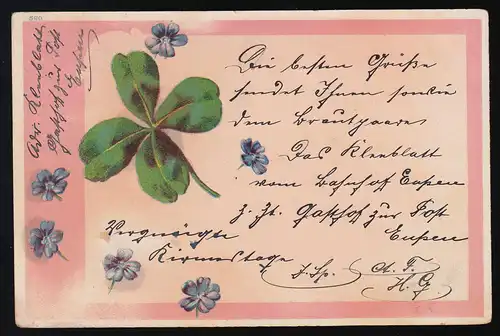 500
Die besten Grüße
sendet Ihnen sowie
dem Brautpaare
Das Kleeblatt
vom Bahnhof Eupen
z. Zt. Gasthof zur Post
Eupen
Vergnügte
Kirmestage
J. Sp. A. T.
H. G
Adr. Kleeblatt
Gasthof zur Post
Eupen